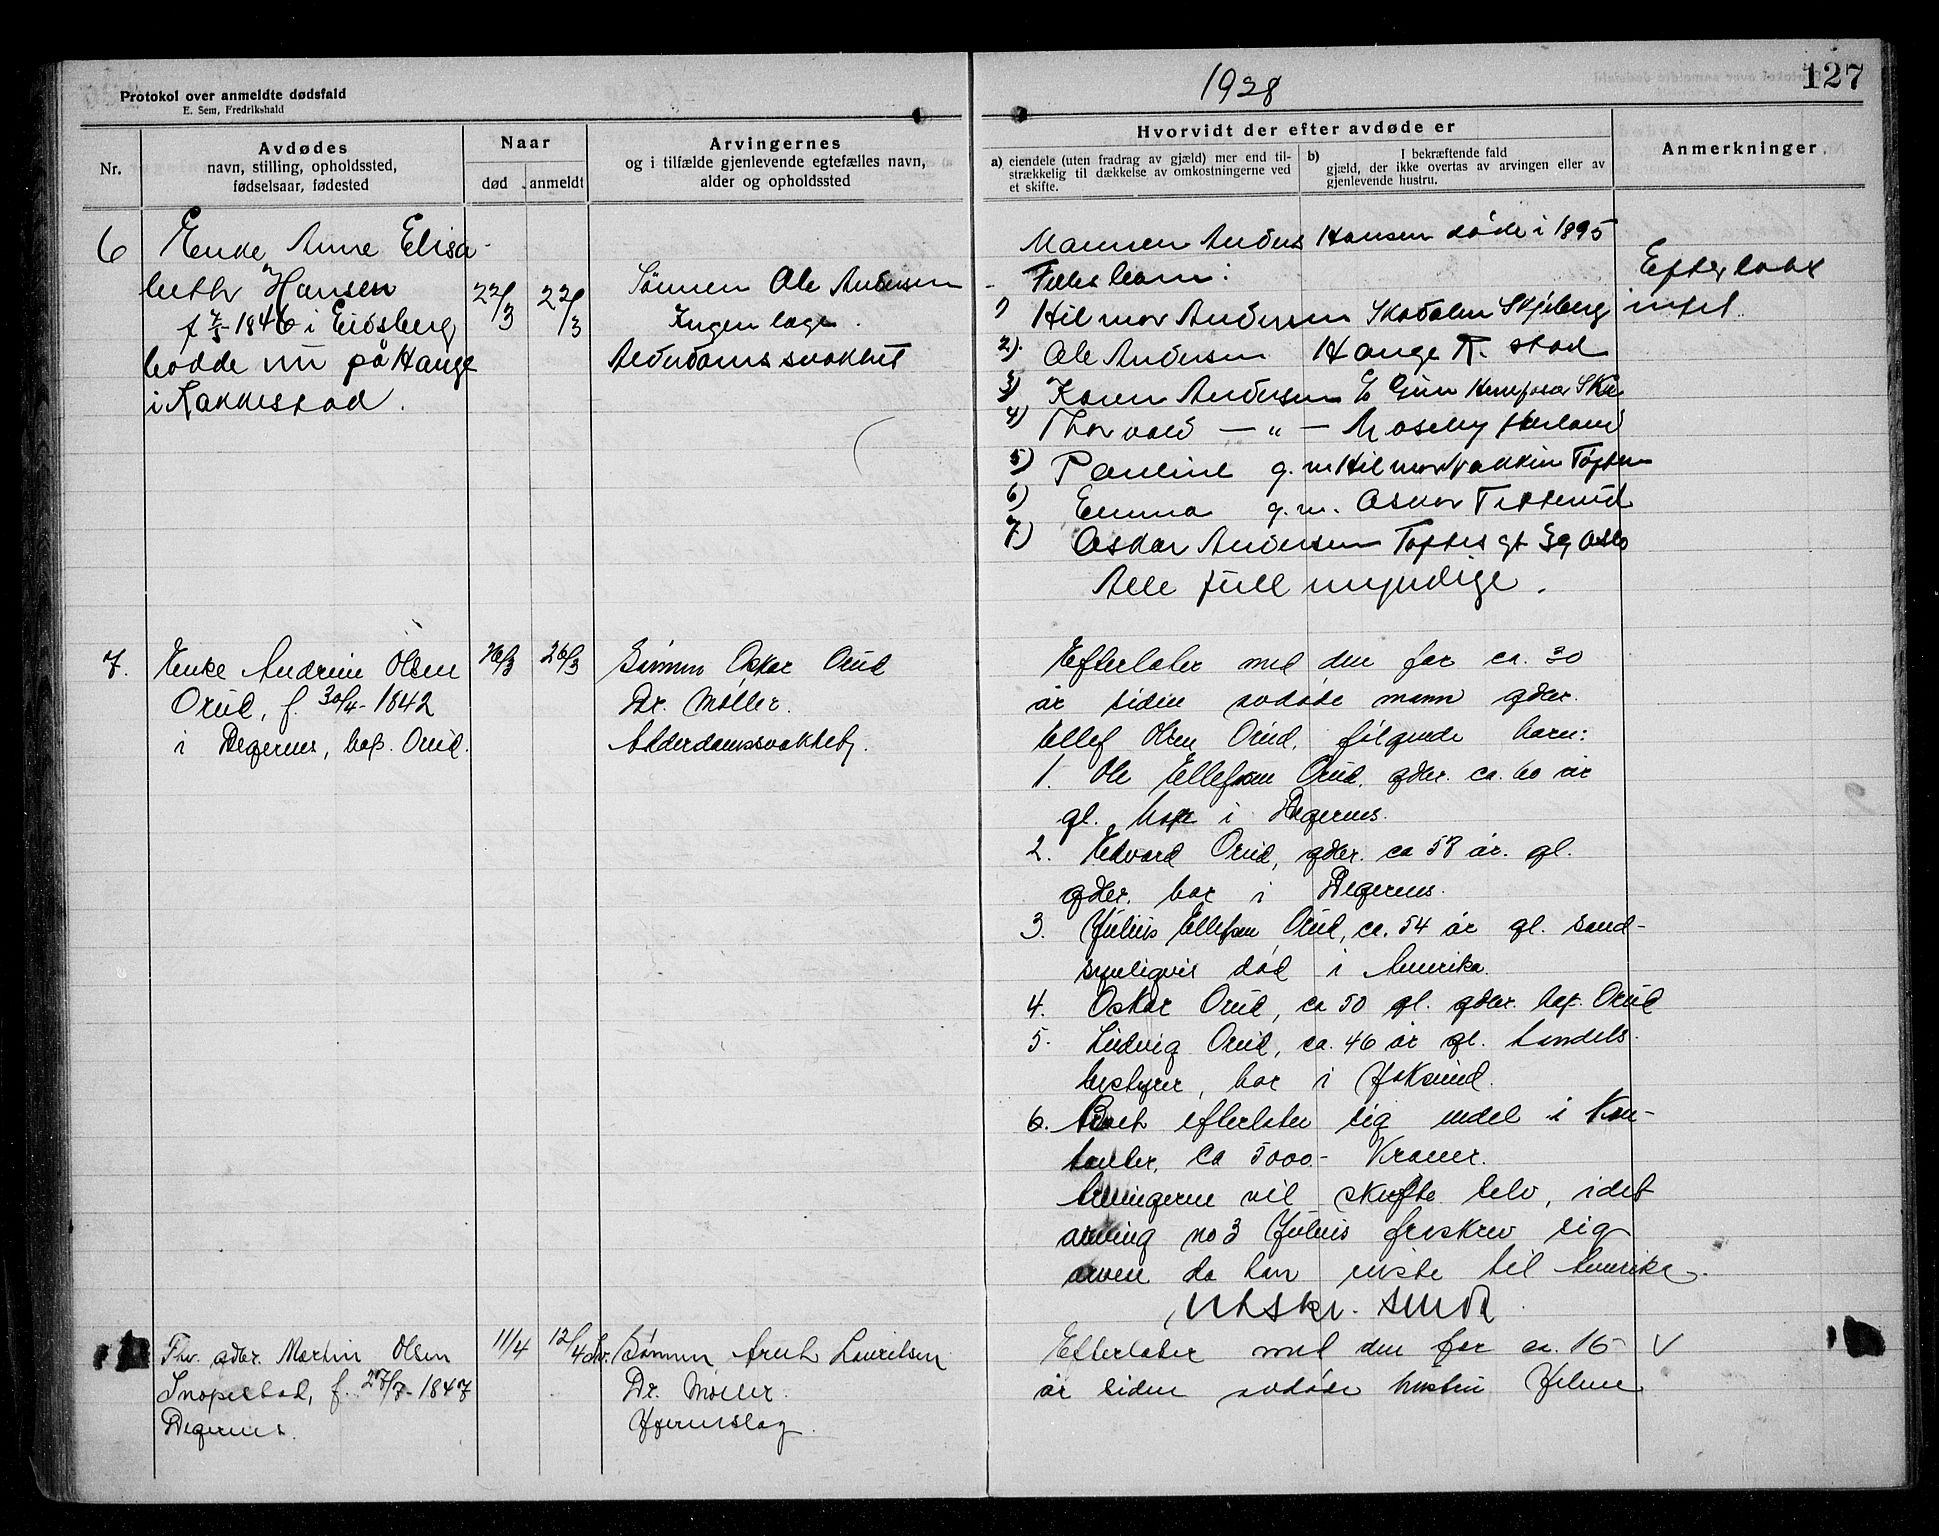 Protokol over anmeldte dødsfald
E. Sem, Fredrikshald
1928
127
Nr.
Avdødes
navn, stilling, opholdssted,
fødselsaar, fødested
Naar
død
anmeldt
Arvingernes
og i tilfælde gjenlevende egtefælles navn,
alder og opholdssted
Hvorvidt der efter avdøde er
a) eiendele (uten fradrag av gjæld) mer end til-
strækkelig til dækkelse av omkostningerne ved
et skifte.
b) I bekræftende fald
gjæld, der ikke overtas av arvingen eller av
gjenlevende hustru.
Anmerkninger.
6
Enke Anne Elisa-
beth Hansen
f 7/5-1846 i Eidsberg
bodde nu på Hauge
i Rakkestad.
22/3
22/3
Sønnen Ole Andersen
Ingen læge.
Alderdomssvakhet
Mannen Anders Hansen døde i 1895
Felles barn:
1) Hilmar Andersen Skadalen Skjeberg
2). Ole Andersen Hauge R.stad
3) Karen Andersen
4) Thorvald — " — Moseby
5) Pauline g. m Hilmar
6) Emma g. m. Oskar
7) Oskar Andersen Toftes gt 39 Oslo
Alle full myndige.
Efterlot
intet.
7.
Enke Andrine Olsen
Orud, f. 30/4-1842
i Degernes, bop. Orud.
26/3
26/3
Sønnen Oskar Orud
Dr. Møller.
Alderdomssvakhet.
Efterlater med den for ca. 30
år siden avdøde mann gdbr.
Ellef Olsen Orud, følgende barn:
1. Ole Ellefsen Orud, gdbr. ca. 60 år
gl. i Degernes.
2. Edvard Orud, gdbr. ca 58 år. gl.
gdbr. bor i Degernes.
3. Julius Ellefsen Orud, ca. 54 år gl. sand-
synligvis død i Amerika.
4. Oskar Orud, ca 50 gl. gdbr. bop. Orud
5. Ludvig Orud, ca. 46 år gl. handels-
bestyrer, bor i
6. Boet efterlater sig midel i Kon-
tanter, ca 5000.- Kroner.
Arvingerne vil skifte selv, idet
arving no 3 Julius fraskrev sig
arven da han reiste til Amerika.
Utskr. sendt.
Fhv. gdbr. Martin Olsen
Snopestad, f. 27/7-1847
Degernes.
11/4
12/4
Sønnen Arnt Lauritsen
Dr. Møller.
Hjerneslag.
Efterlater med den for ca. 15
år siden avdøde hustru
V